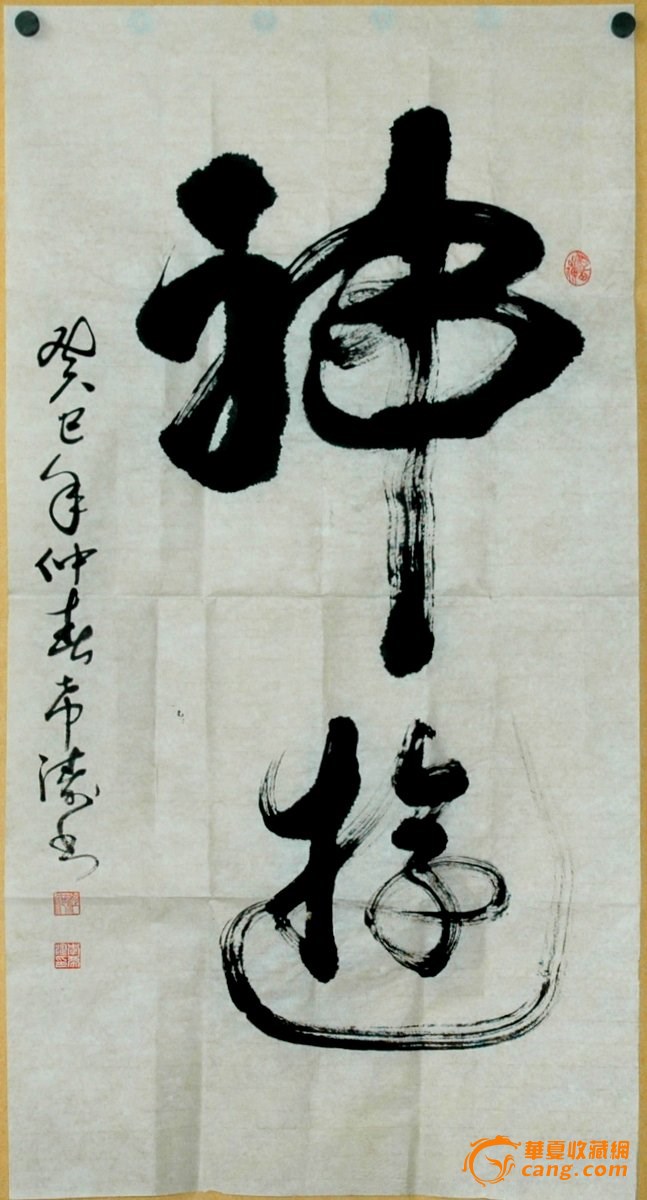 神遊
癸巳年仲春希濤书
華夏收藏網
cang.com